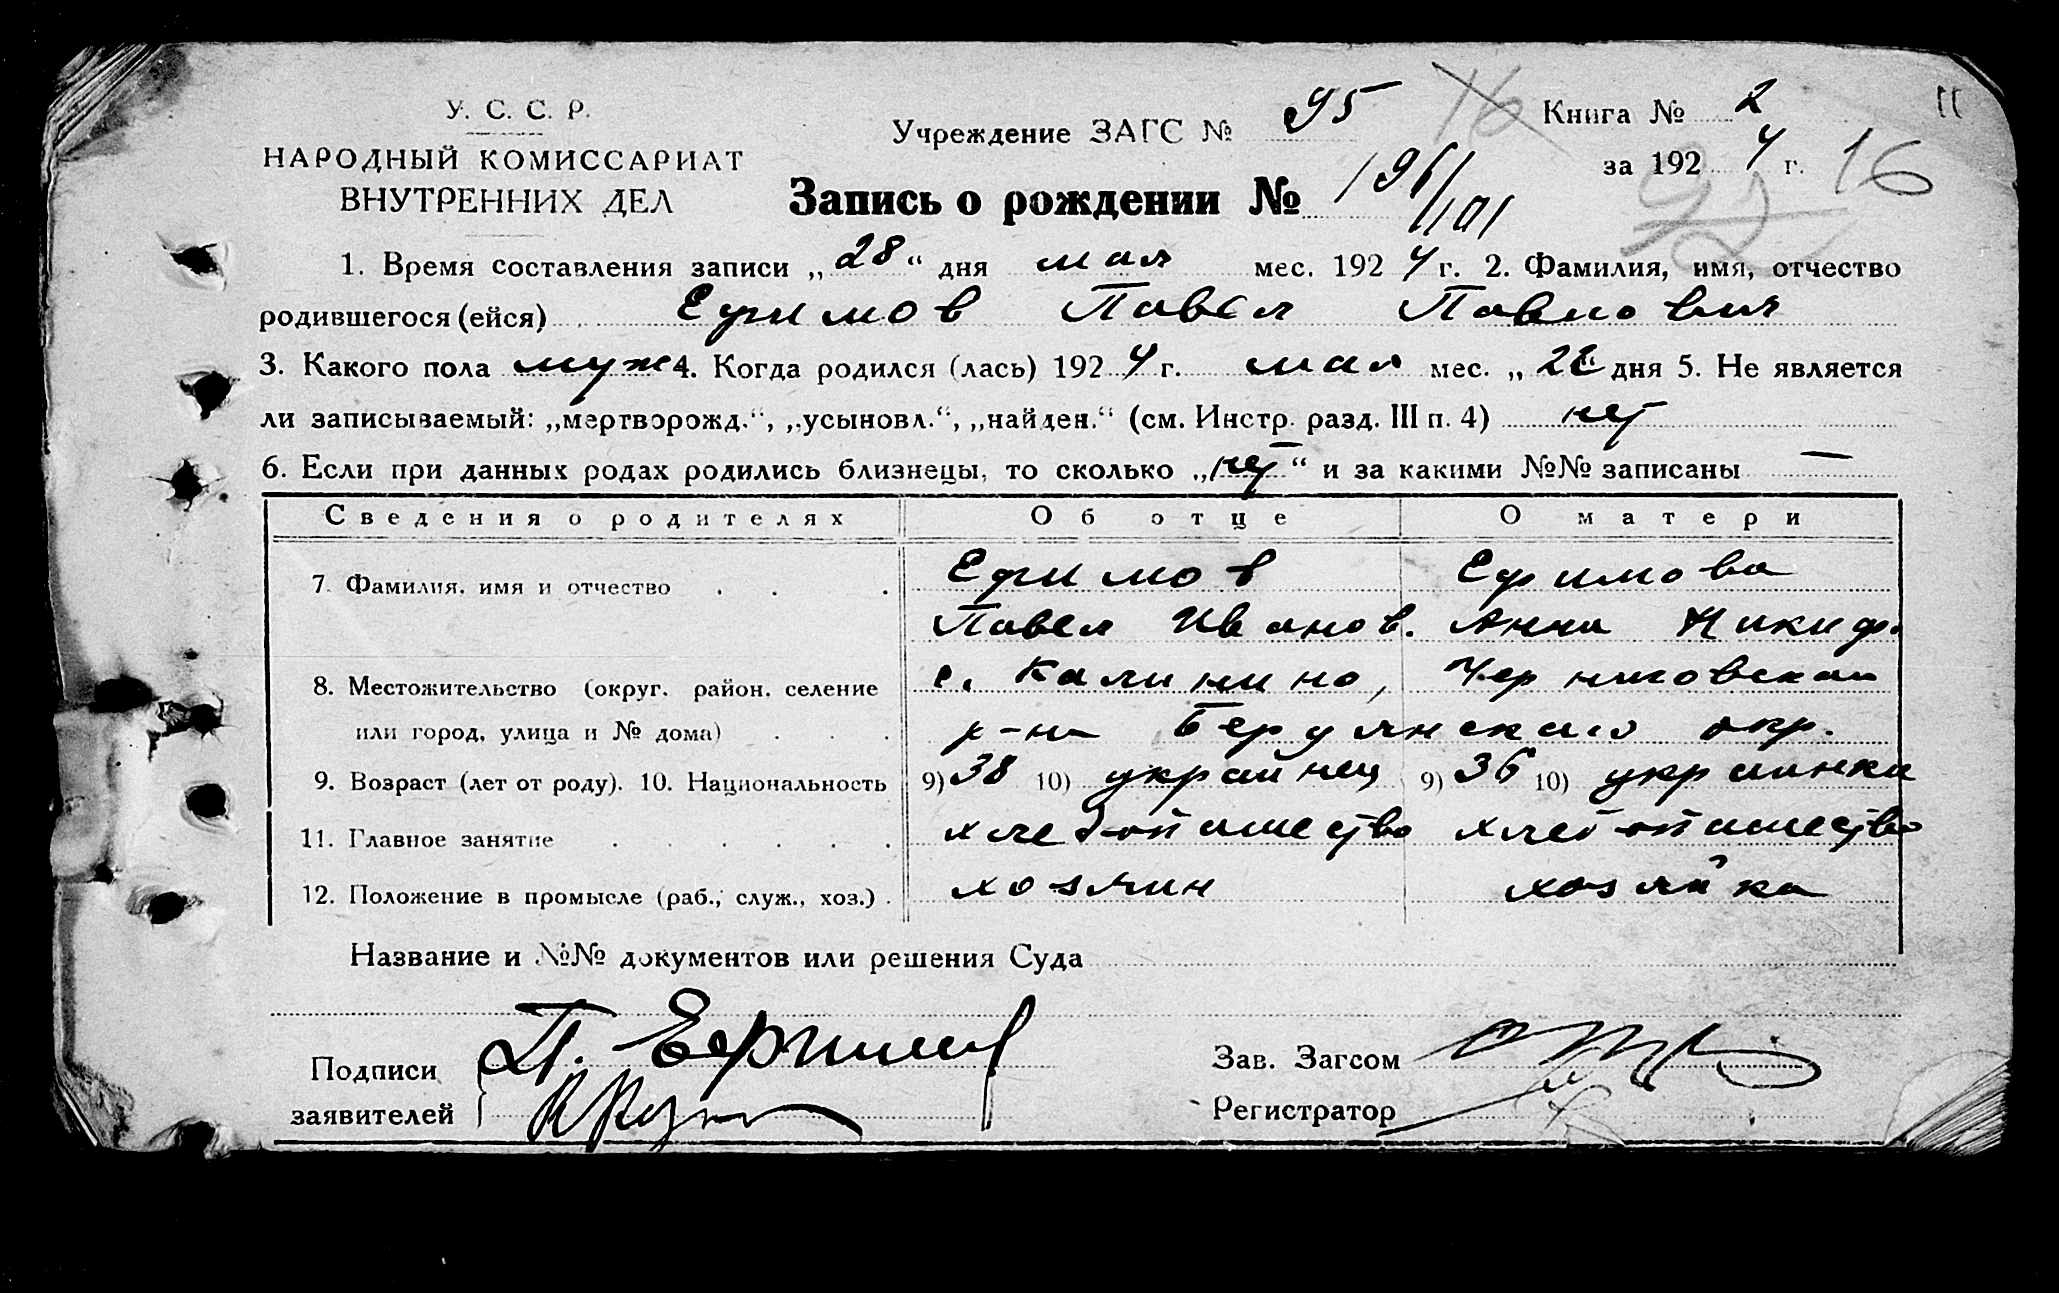 У. С. С. Р.
НАРОДНЫЙ КОМИССАРИАТ
ВНУТРЕННИХ ДЕЛ
Учреждение ЗАГС № 95
16
Книга № 2
за 1924 г. 16
92
Запись о рождении № 196/101
1. Время составления записи „28“ дня мая мес. 1924 г. 2. Фамилия, имя, отчество
родившегося (ейся) Ефимов Павел Павлович
3. Какого пола муж 4. Когда родился (лась) 1924 г. мая мес. „22“ дня 5. Не является
ли записываемый: „мертворожд.“, „усыновл.“, „найден.“ (см. Инстр. разд. III п. 4) нет
6. Если при данных родах родились близнецы, то сколько „нет“ и за какими №№ записаны —
Сведения о родителях Об отце О матери
7. Фамилия, имя и отчество . . . Ефимов Ефимова
Павел Иванов. Анна Никиф.
8. Местожительство (округ. район. селение с. Калинино, Черниговский
или город, улица и № дома) . . . р-на Бердянского окр.
9. Возраст (лет от роду). 10. Национальность 9) 38 10) украинец 9) 36 10) украинка
11. Главное занятие . . . . . . хлебопашество хлебопашество
12. Положение в промысле (раб., служ., хоз.) . хозяин хозяйка
Название и №№ документов или решения Суда
Подписи
заявителей
П. Ефимов
Зав. Загсом
Регистратор